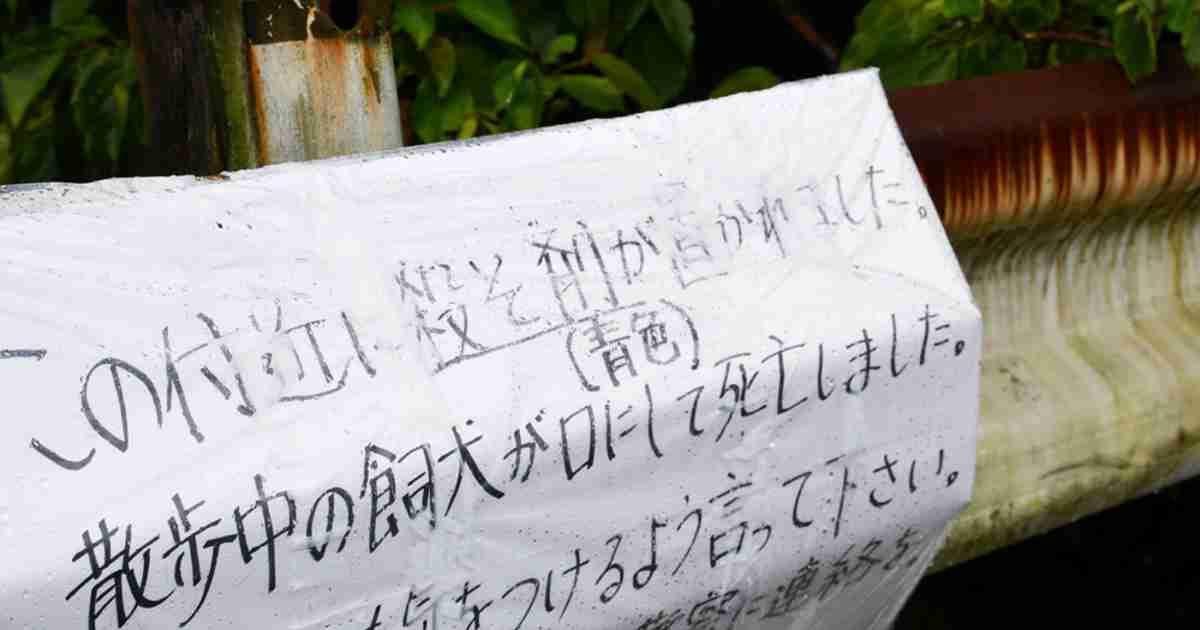 この付近に殺そ剤が置かれました。
(青色)
散歩中の飼犬が口にして死亡しました。
気をつけるよう言って下さい。
警察に連絡を